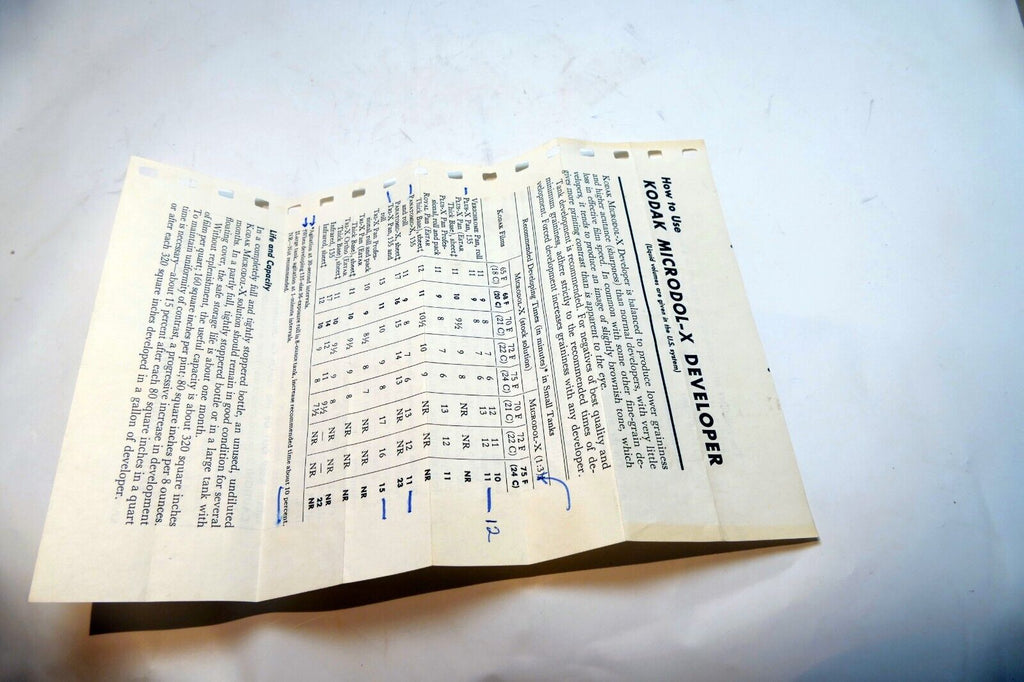 How to Use
KODAK MICRODOL-X DEVELOPER
(Liquid volumes are given in the U.S. system)
KODAK MICRODOL-X Developer is balanced to produce lower graininess
and higher acutance (sharpness) than normal developers, with very little
loss in effective film speed. In common with some other fine-grain de-
velopers, it tends to produce an image of slightly brownish tone, which
gives more printing contrast than is apparent to the eye.
Tank development is recommended. For negatives of best quality and
minimum graininess, adhere strictly to the recommended times of de-
velopment. Forced development increases graininess with any developer.
Recommended Developing Times (in minutes)* in Small Tanks
MICRODOL-X (stock solution) MICRODOL-X (1:3)
KODAK Films 65 F 68 F 70 F 72 F 75 F 70 F 72 F 75 F
(18 C) (20 C) (21 C) (22 C) (24 C) (21 C) (22 C) (24 C)
VERICHROME Pan, roll 11 9 8 7 6 12 11 10
PLUS-X Pan, 135 11 9 8 7 6 13 12 11 12
PLUS-X Pan (ESTAR
Thick Base), sheet† 11 10 9½ 9 8 NR NR NR
PLUS-X Pan Profes-
sional, roll and pack 11 9 8 6 13 12 11
ROYAL Pan (ESTAR
Thick Base), sheet† 12 11 10½ 10 9 NR NR NR
PANATOMIC-X, 135 11 9 8 7 6 13 12 11
PANATOMIC-X, sheet†
and roll 17 16 15 14 13 NR NR 23
TRI-X Pan, 135 and
roll 11 10 9 17 16 15
TRI-X Pan Profes-
sional, roll and pack 10 9 8½ 8 7 NR NR NR
TRI-X Pan (ESTAR
Thick Base), sheet† NR NR NR
TRI-X Ortho (ESTAR
Thick Base), sheet† NR NR NR
Infrared, 135 22
Infrared, sheet† NR NR NR
*Agitation at 30-second intervals.
When developing 135-size 36-exposure roll in 8-ounce tank, increase recommended time about 10 percent.
†Large tank, agitation at 1-minute intervals.
NR—Not recommended.
Life and Capacity
In a completely full and tightly stoppered bottle, an unused, undiluted
KODAK MICRODOL-X solution should remain in good condition for several
months. In a partly full, tightly stoppered bottle or in a large tank with
floating cover, the safe storage life is about one month.
Without replenishment, the useful capacity is about 320 square inches
of film per quart; 160 square inches per pint; 80 square inches per 8 ounces.
To maintain uniformity of contrast, a progressive increase in development
time is necessary—about 15 percent after each 80 square inches in a quart
or after each 320 square inches developed in a gallon of developer.